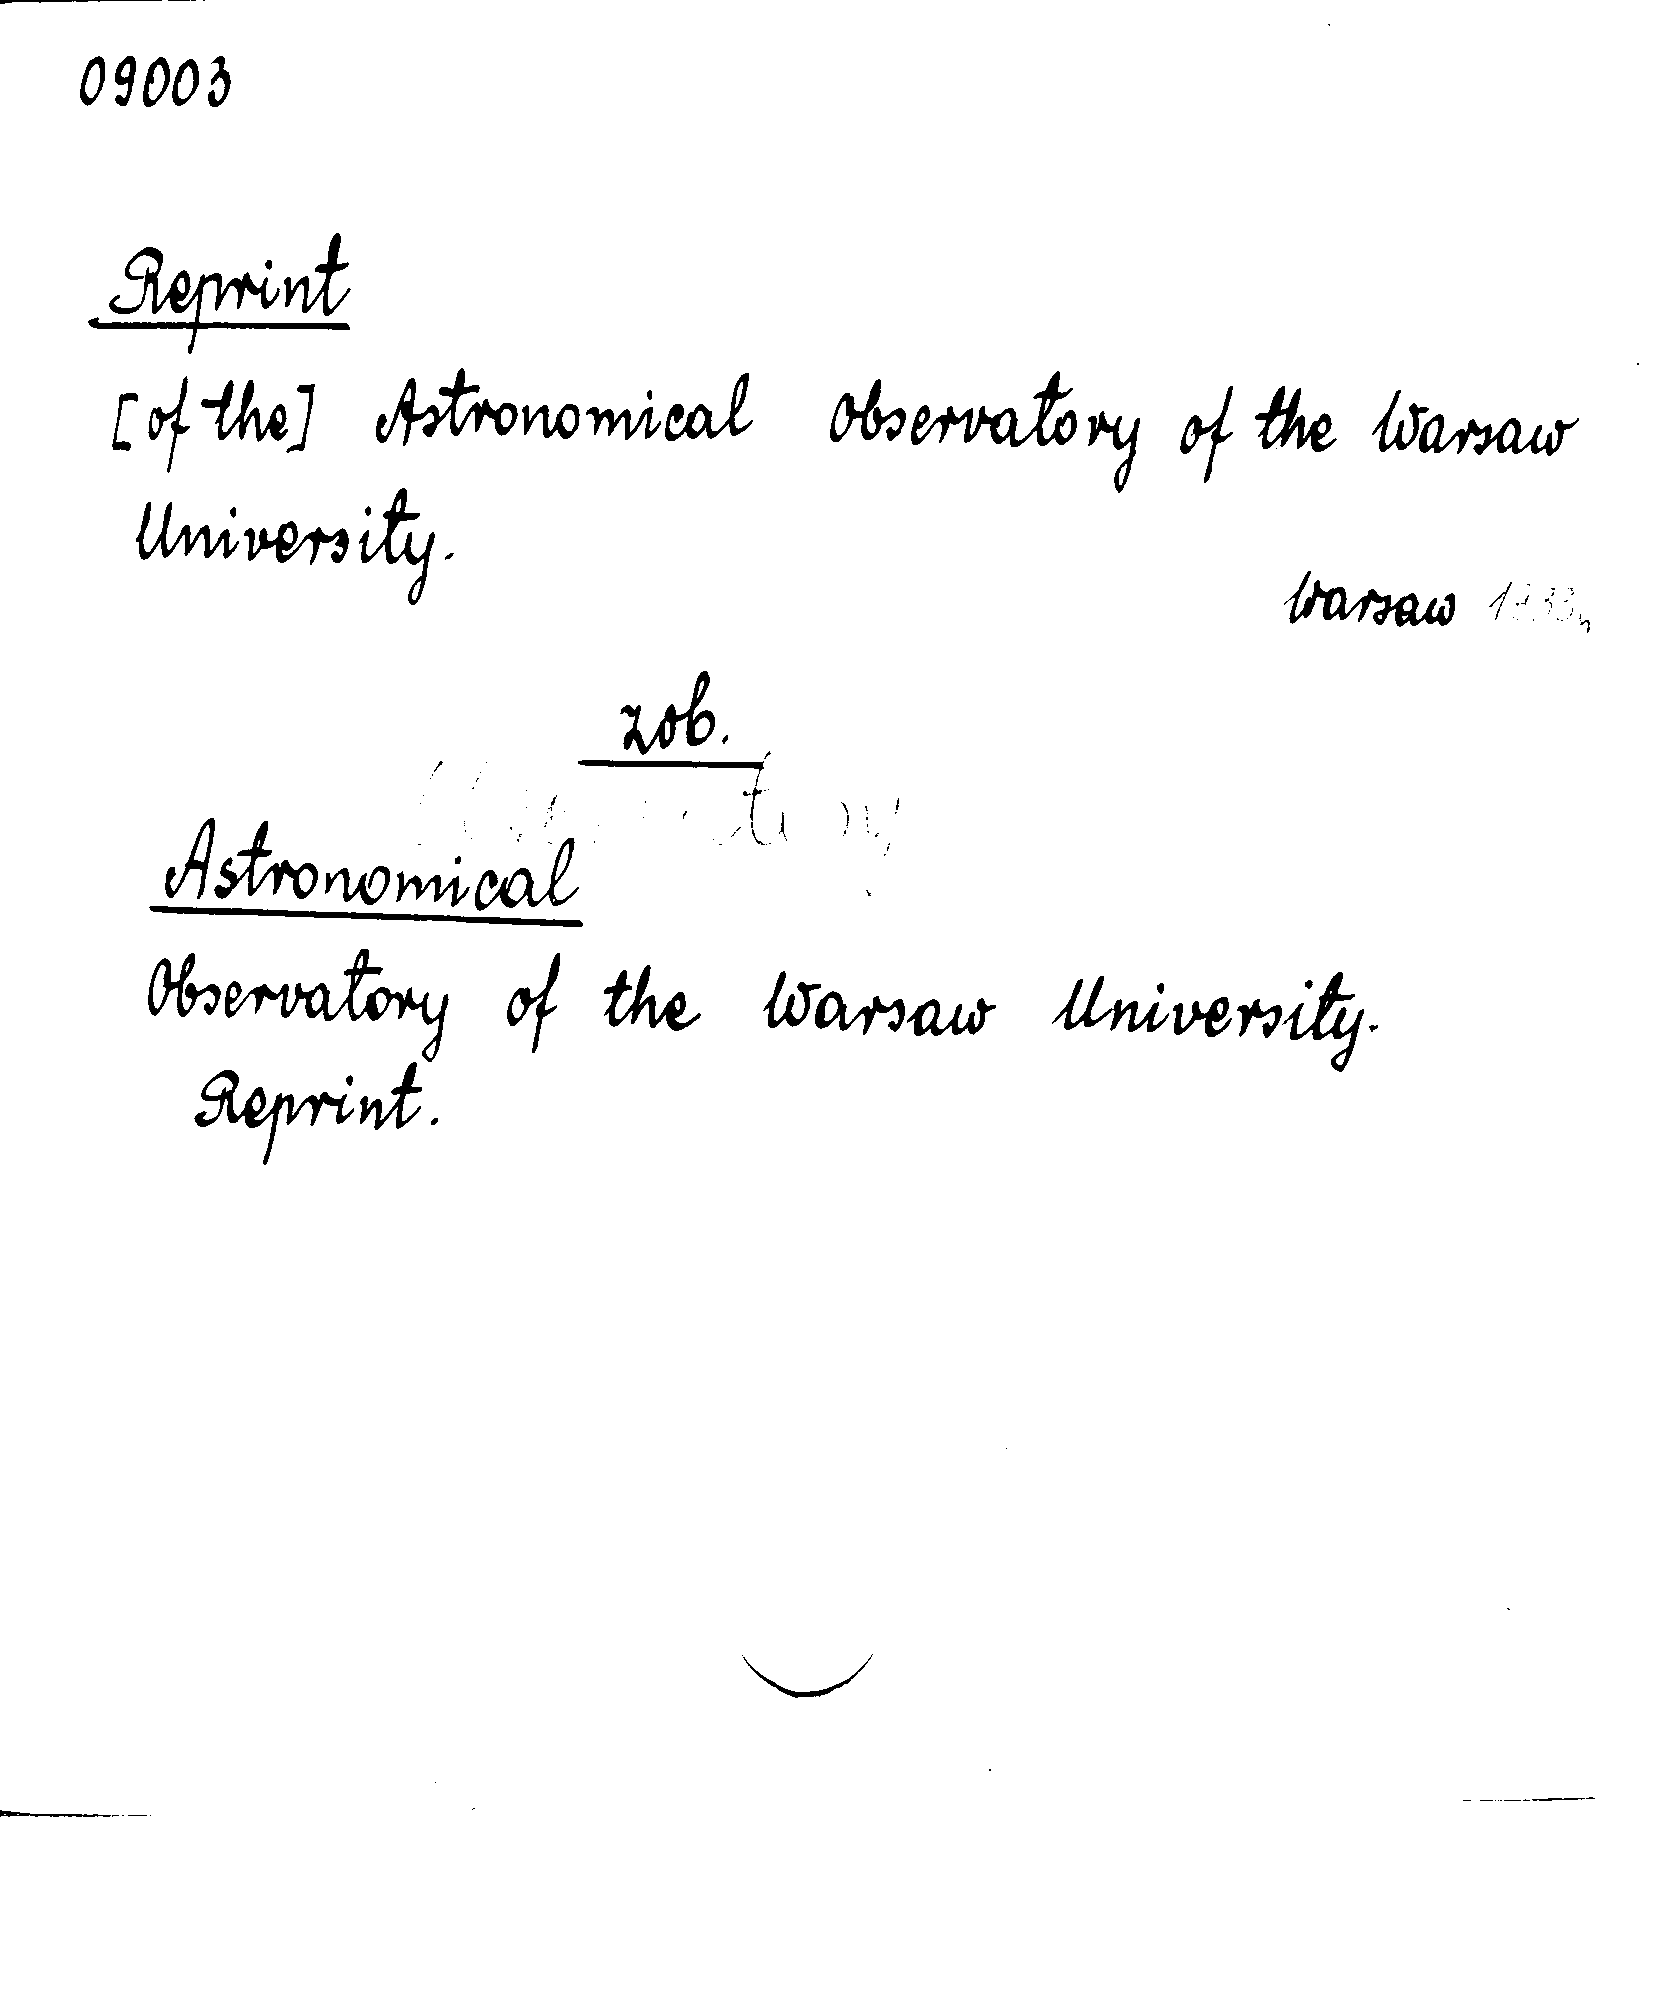 09003
Reprint
[of the] Astronomical Observatory of the Warsaw
University.
Warsaw
zob.
Astronomical
Observatory of the Warsaw University.
Reprint.